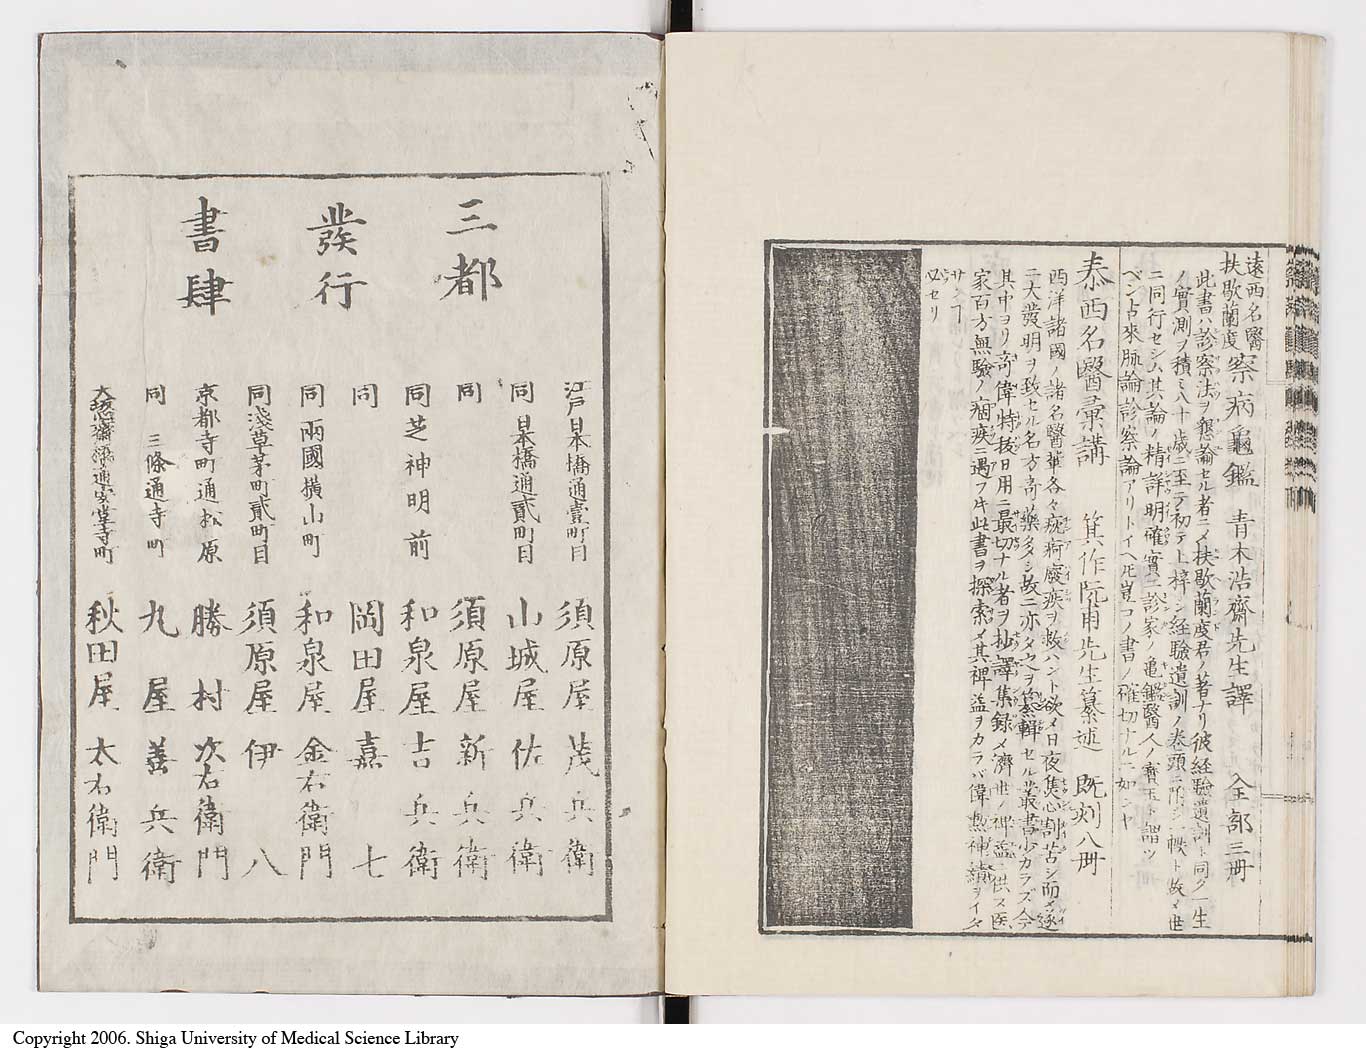 遠西名醫
扶歇蘭度
察病龜鑑 青木浩齋先生譯 全部三册
此書ハ診察法ヲ懇論セル者ニメ扶歇蘭度君ノ著ナリ彼經驗遺訓ト同ク一生
ノ實測ヲ積ミ八十歳ニ至テ初テ上梓シ經驗遺訓ノ巻頭ニ附シ一帙ト故メ世
ニ同行セシム其論ノ精詳明確實ニ診家ノ亀鑑醫人ノ寶玉ト謂ツ
ベシ古來脉論診察論アリトイヘ𪜈豈コノ書ノ確切ナルニ如ンヤ
泰西名醫彙講 箕作阮甫先生纂述 既刻八册
西洋諸國ノ諸名醫輩各々疣痾癈疾ヲ救ハント欲メ日夜焦心割苦シ而メ遂
ニ大發明ヲ致セル名方奇藥多シ故ニ亦タ之ヲ纂輯セル叢書少カラズ今
其中ヨリ奇偉特抜日用ニ最切ナル者ヲ抄譯集録メ濟世ノ裨益ニ供ス医
家百方無驗ノ痼疾ニ遇フ𪜈此書ヲ探索メ其裨益ヲカラバ偉熱神績ヲイタ
サンヿ
必セリ
三都
發行
書肆
江戸日本橋通壹町目 須原屋茂兵衛
同 日本橋通貳町目 山城屋佐兵衛
同 須原屋新兵衛
同 芝神明前 和泉屋吉兵衛
同 岡田屋嘉七
同 兩國横山町 和泉屋金右衛門
同 淺草茅町貳町目 須原屋伊八
京都寺町通松原 勝村次右衛門
同 三條通寺町 丸屋善兵衛
大坂心齋橋通安堂寺町 秋田屋太右衛門
Copyright 2006. Shiga University of Medical Science Library